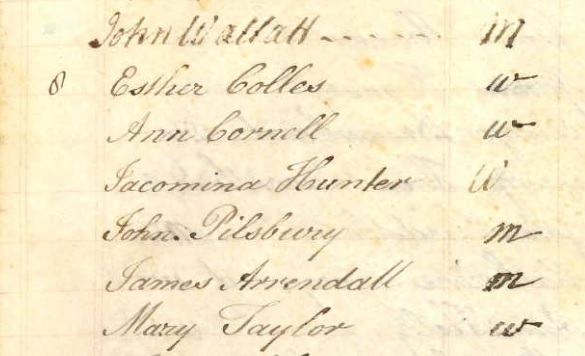 John Wallatt m
8 Esther Colles w
Ann Cornell w
Jacomina Hunter W
John Pilsbury m
James Arrendall m
Mary Taylor w